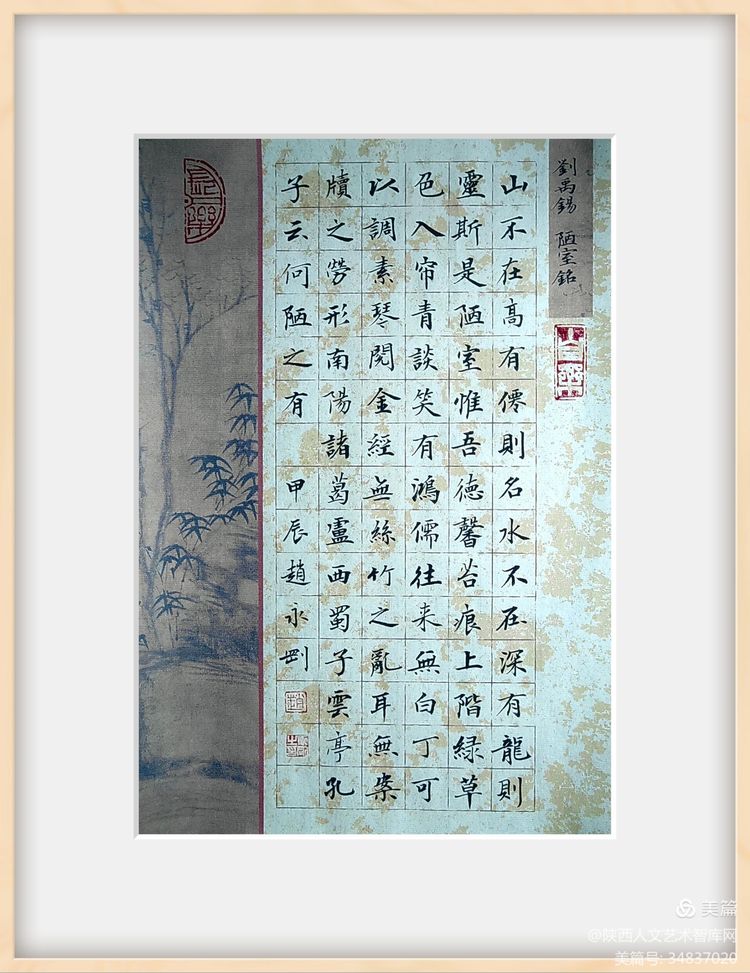 劉禹錫 陋室銘
山不在高有僊則名水不在深有龍則
靈斯是陋室惟吾德馨苔痕上階緑草
色入帘青談笑有鴻儒往来無白丁可
以調素琴閱金經無絲竹之亂耳無案
牘之勞形南陽諸葛盧西蜀子雲亭孔
子云何陋之有 甲辰趙永剛
美篇
@陕西人文艺术智库网
美篇号: 34837020